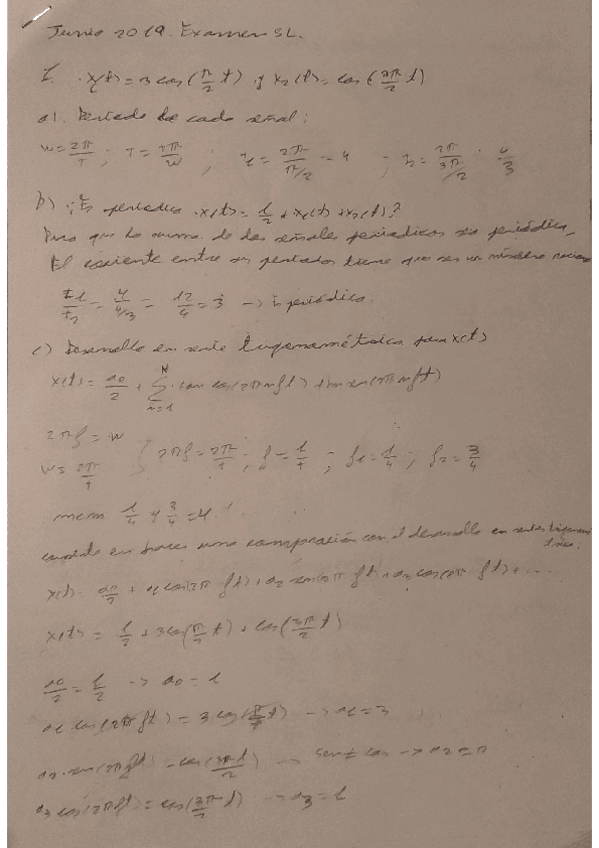 Junio 2019. Examen SL.
1. x₁(t) = 3 cos(π/2 t) y x₂(t) = cos(3π/2 t)
a) Periodo de cada señal:
w = 2π/T ; T = 2π/w ; T₁ = 2π/(π/2) = 4 ; T₂ = 2π/(3π/2) = 4/3
b) ¿Es periodica x(t) = 1/2 + x₁(t) + x₂(t)?
Para que la suma de dos señales periodicas sea periódica,
El cociente entre sus periodos tiene que ser un número
T1/T2 = 4/(4/3) = 12/4 = 3 -> Es periódica.
c) Desarrollo en serie trigonométrica para x(t)
x(t) = a0/2 + Σ n=1 N an cos(2πnft) + bn sen(2πnft)
2πf = w
w = 2π/T } 2πf = 2π/T ; f = 1/T ; f1 = 1/4 ; f2 = 3/4
mcm 1/4 y 3/4 = 4
una comparación con el desarrollo en series
x(t) = a0/2 + a1 cos(2π ft) + a2 sen(2π ft + a3 cos(2π ft) + ...
x(t) = 1/2 + 3cos(π/2 t) + cos(3π/2 t)
a0/2 = 1/2 -> a0 = 1
a1 cos(2πft) = 3 cos(π/2 t) -> a1 = 3
a2 · sen(2πft) = cos(3πt/2) -> sen ≠ cos -> a2 = 0
a3 cos(2πft) = cos(3π/2 t) -> a3 = 1